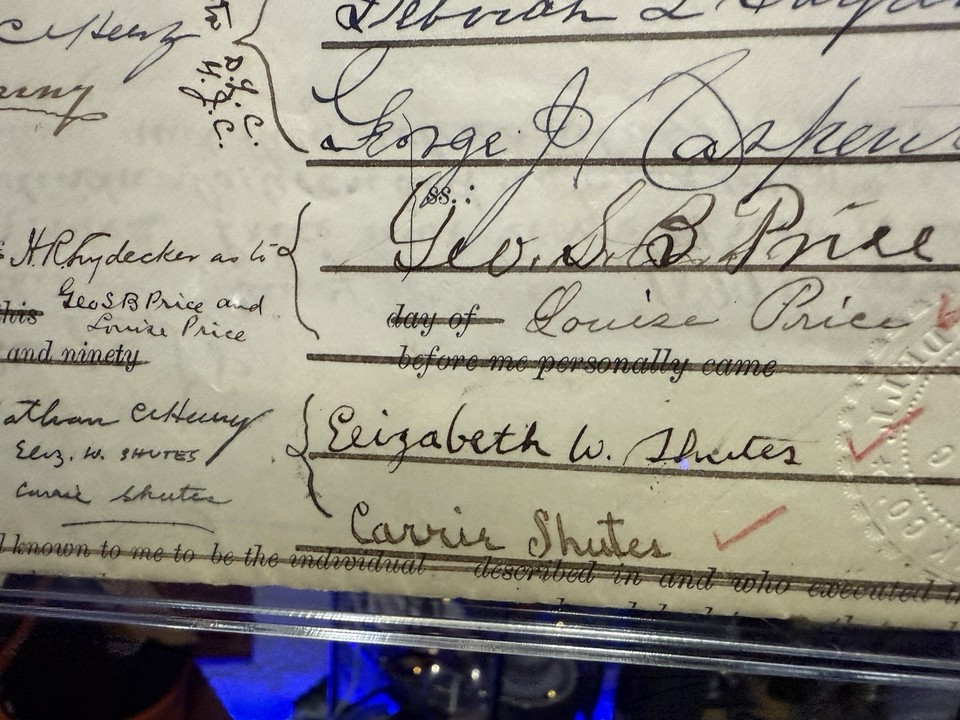 Deborah L
George J Carpen
ss.:
Geo. S. B Price
H. R. Snydecker as to
Geo S B Price and
Louise Price
this
day of Louise Price
and ninety
before me personally came
athan C Henry
Eliz. W. SHUTES
Carrie Shutes
Elizabeth W. Shutes
Carrie Shutes
known to me to be the individual described in and who executed